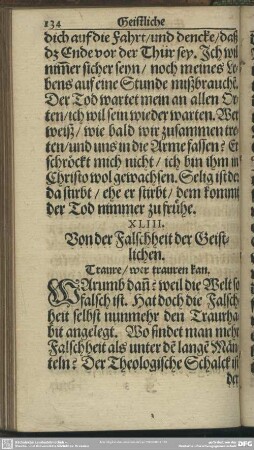 134
Geistliche
dich auff die Fahrt/ und dencke/ daß
dz Ende vor der Thür sey. Ich wil
nim̃er sicher seyn/ noch meines Le-
bens auf eine Stunde mißbrauchẽ.
Der Tod wartet mein an allen Or-
ten/ ich wil sein wieder warten. Wer
weiß/ wie bald wir zusammen tre-
ten/ und uns in die Arme fassen? Er
schröckt mich nicht/ ich bin ihm in
Christo wol gewachsen. Selig ist der
da stirbt/ ehe er stirbt/ dem kommt
der Tod nimmer zu frühe.
XLIII.
Von der Falschheit der Geist-
lichen.
Traure/ wer trauren kan.
WArumb dañ? weil die Welt so
falsch ist. Hat doch die Falsch-
heit selbst nunmehr den Traurha-
bit angelegt. Wo findet man mehr
Falschheit als unter dẽ langẽ Män-
teln? Der Theologische Schalck ist
der